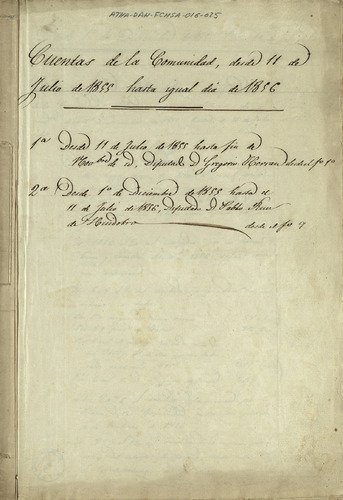 ATHA-DAH-FCMSA-018-025
Cuentas de la Comunidad, desde 11 de
Julio de 1855 hasta igual dia de 1856
1ª Desde 11 de Julio de 1855 hasta fin de
Novbre de id, Diputado D Gregorio Herran desde el fº 1º
2ª Desde 1º de Diciembre de 1855 hasta el
11 de Julio de 1856, Diputado D. Pablo
de desde el fº 7